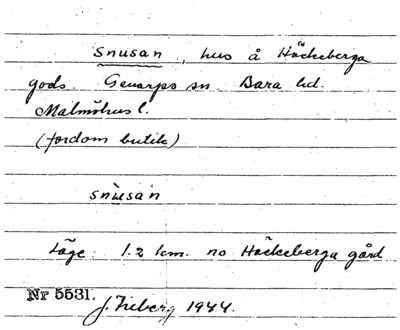 snusan, hus å Häckeberga
gods. Genarps sn. Bara hd.
Malmöhus l.
(fordom butik)
snùsaǹ
Läge: 1.2 km. no Häckeberga gård
Nr 5531. J. 1944.